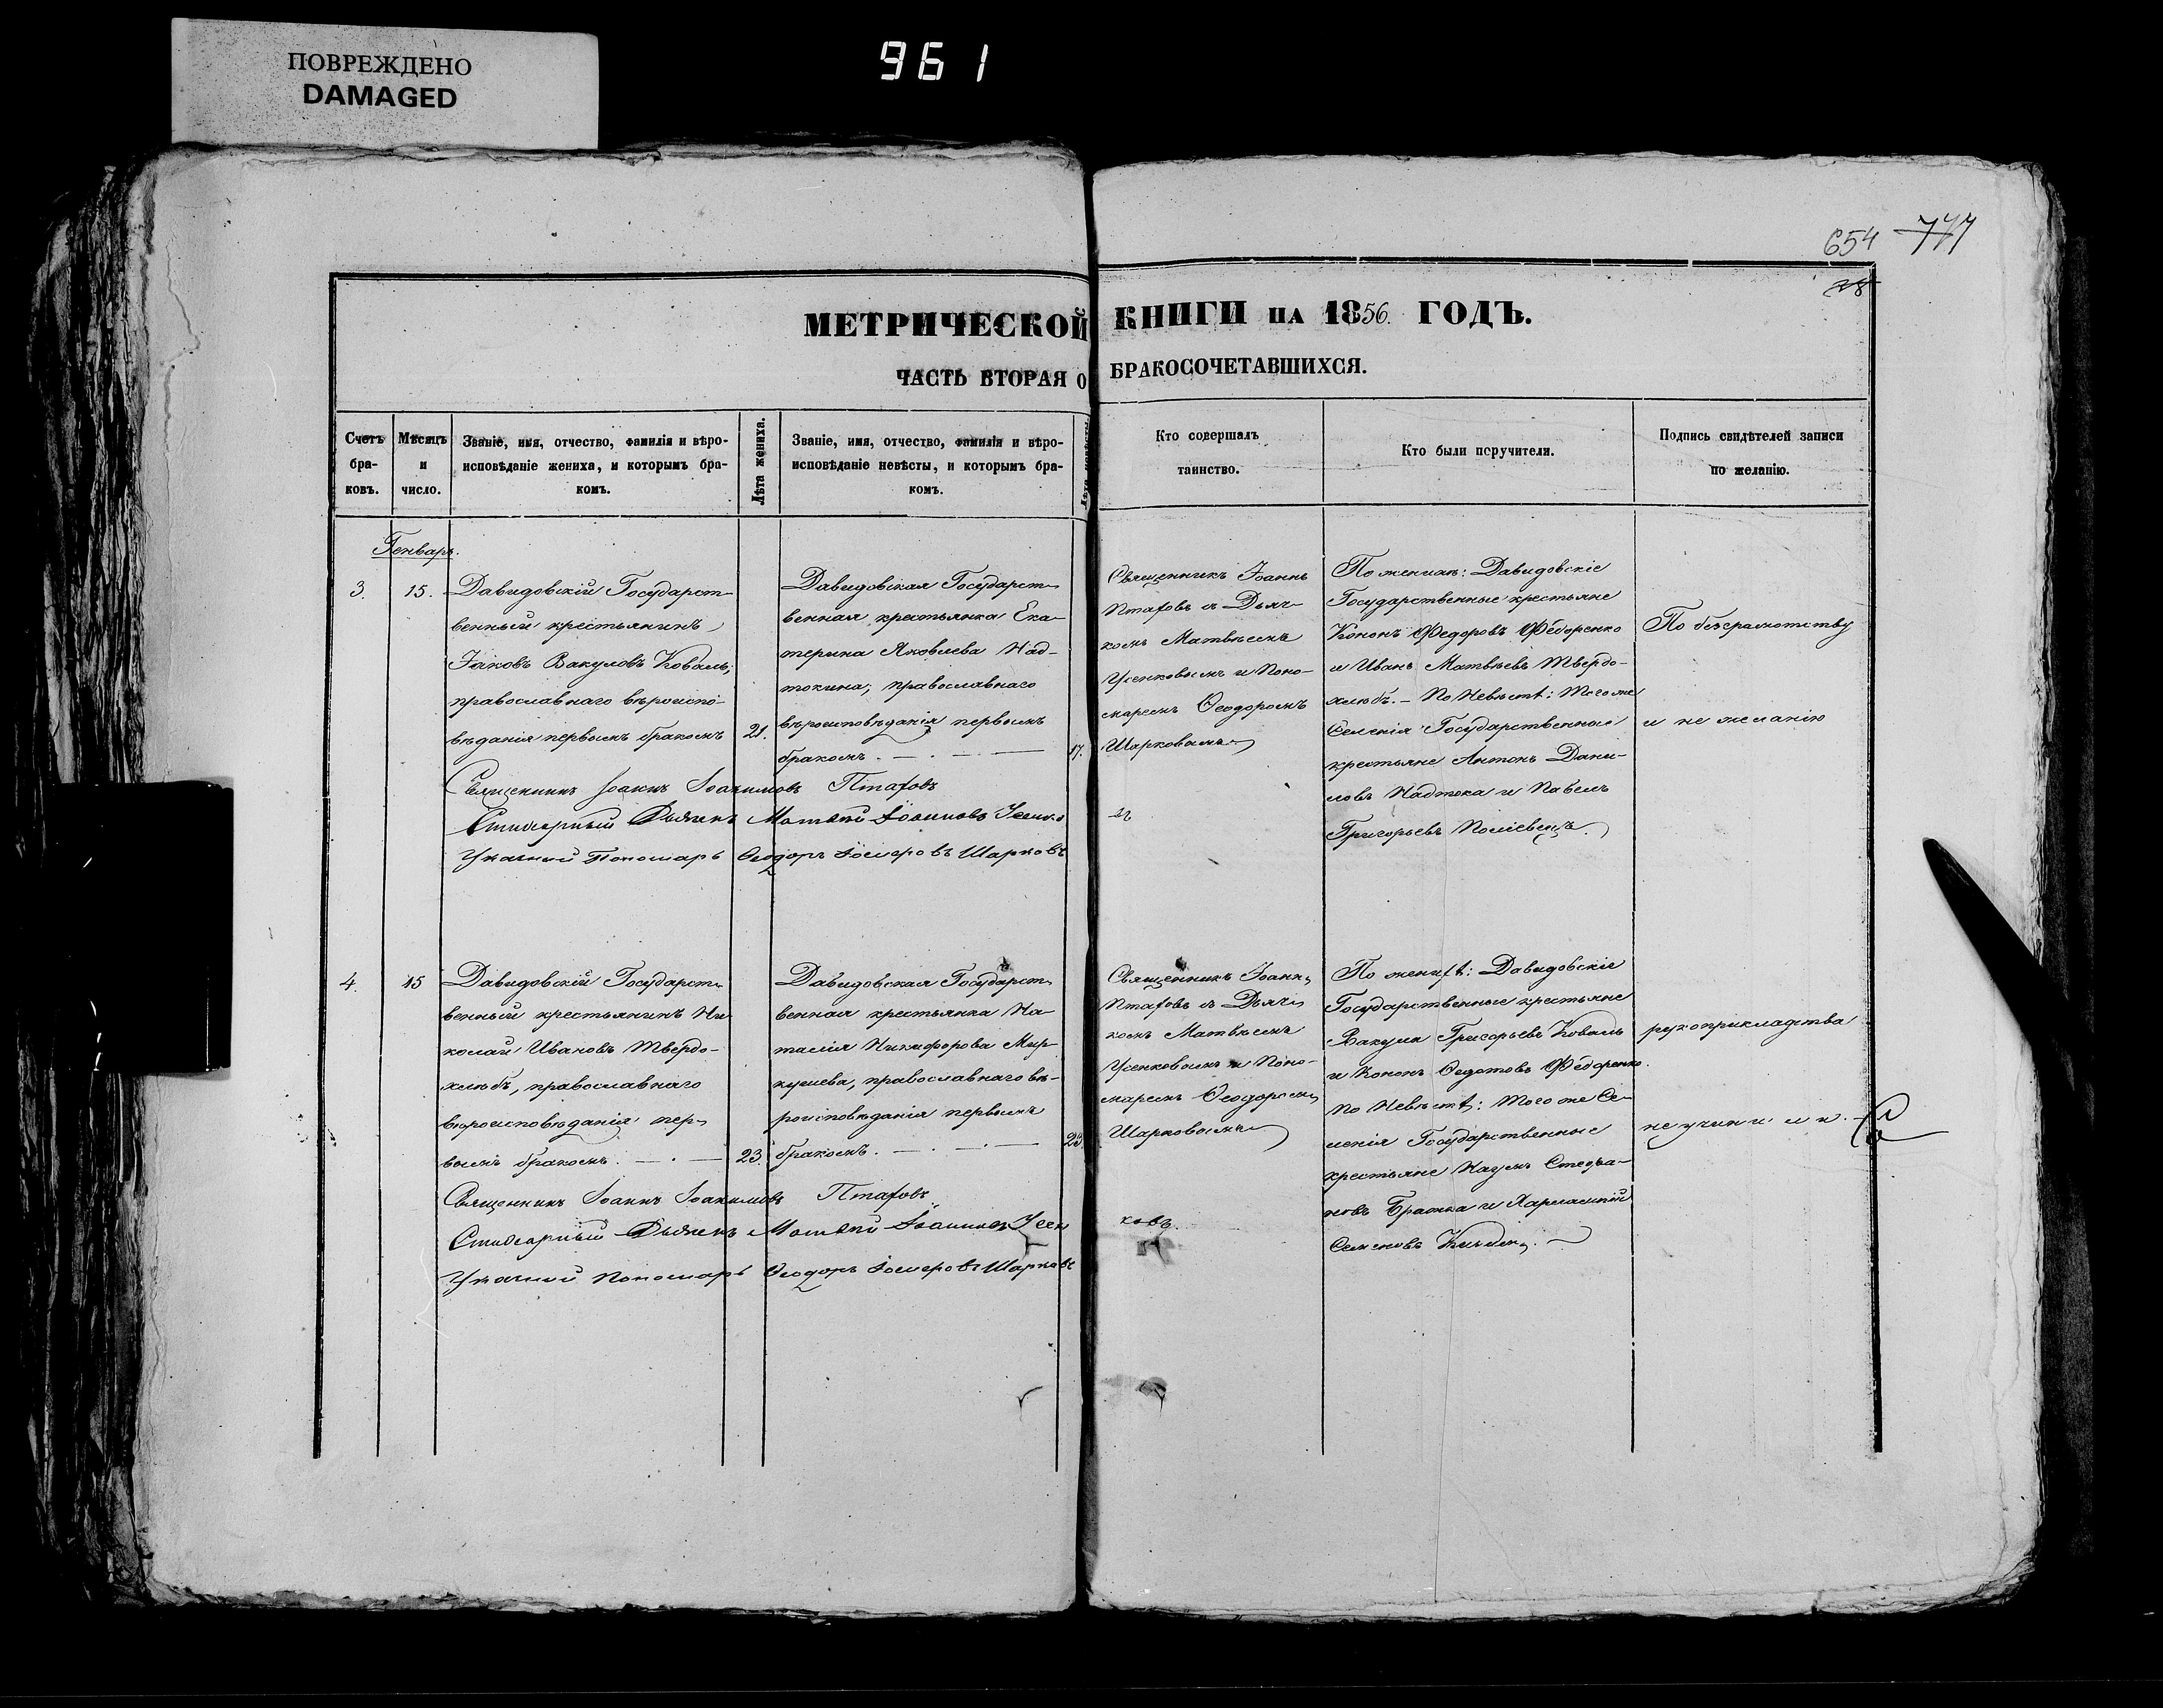 ПОВРЕЖДЕНО
DAMAGED
961
654 777
28
МЕТРИЧЕСКОЙ КНИГИ НА 1856 ГОДЪ.
ЧАСТЬ ВТОРАЯ О БРАКОСОЧЕТАВШИХСЯ.
Счетъ
бра-
ковъ.
Мѣсяцъ
и
число.
Званіе, имя, отчество, фамилія и вѣро-
исповѣданіе жениха, и которымъ бра-
комъ.
Лѣта жениха.
Званіе, имя, отчество, фамилія и вѣро-
исповѣданіе невѣсты, и которымъ бра-
комъ.
Лѣта невѣсты
Кто совершалъ
таинство.
Кто были поручители.
Подпись свидѣтелей записи
по желанію.
Генварь.
3.
15.
Давидовскій Государст-
венный крестьянинъ
Іаковъ Вакуловъ Коваль,
православнаго вѣроиспо-
вѣданія первымъ бракомъ
21.
Давидовская Государст-
венная крестьянка Ека-
терина Яковлева Над-
токина, православнаго
вѣроисповѣданія первымъ
бракомъ.
17.
Священникъ Іоаннъ
Птаховъ съ Дьяч-
комъ Матвѣемъ
Усенковымъ и Поно-
маремъ Ѳеодоромъ
Шарковымъ
По женихѣ: Давидовскіе
Государственные крестьяне
Кононъ Федоровъ Федоренко
и Иванъ Матвѣевъ Твердо-
хлѣбъ. - По Невѣстѣ: Того же
Селенія Государственные
крестьяне Антонъ Дани-
ловъ Надтока и Павелъ
Григорьевъ
По безграмотству
и не желанію
Священникъ Іоаннъ Іоакимовъ Птаховъ
Стихарный Дьячекъ Матвѣй Іоанновъ Усенко
Указный Пономарь Ѳеодоръ Шарковъ
4.
15
Давидовскій Государст-
венный крестьянинъ Ни-
колай Ивановъ Твердо-
хлѣбъ, православнаго
вѣроисповѣданія пер-
вымъ бракомъ.
23.
Давидовская Государст-
венная крестьянка На-
талія Никифорова Мир-
кушева, православнаго вѣ-
роисповѣданія первымъ
бракомъ.
Священникъ Іоаннъ
Птаховъ съ Дьяч-
комъ Матвѣемъ
Усенковымъ и Поно-
маремъ Ѳеодоромъ
Шарковымъ
По женихѣ: Давидовскіе
Государственные крестьяне
Вакула Григорьевъ Коваль
и Кононъ Ѳедотовъ Федоренко.
По Невѣстѣ: Того же Се-
ленія Государственные
крестьяне Наумъ Стефа-
новъ Бражка и Харлампій
Семеновъ
рукоприкладства
не учинили.
Священникъ Іоаннъ Іоакимовъ Птаховъ
Стихарный Дьячекъ Матвѣй Іоанновъ Усен
ковъ.
Указный Пономарь Ѳеодоръ Шарковъ